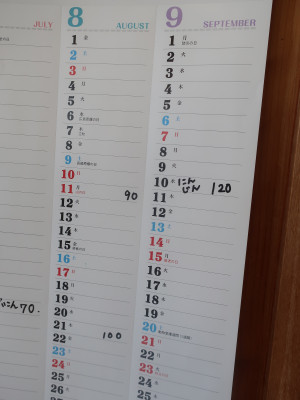 JULY
にん70.
8 AUGUST
1 金
2 土
3 日
4 月
5 火
6 水
7 木
8 金
9 土
10 日
11 月 90
12 火
13 水
14 木
15 金
16 土
17 日
18 月
19 火
20 水
21 木
22 金 100
23 土
24 日
25 月
26 火
9 SEPTEMBER
1 月
2 火
3 水
4 木
5 金
6 土
7 日
8 月
9 火
10 水 にんじん 120
11 木
12 金
13 土
14 日
15 月
16 火
17 水
18 木
19 金
20 土
21 日
22 月
23 火
24 水
25 木